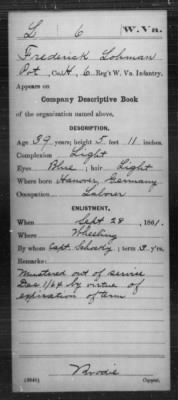 L 6 W. Va.
Frederick Lohman
Pvt, Co. H, 6 Reg't W. Va. Infantry.
Appears on
Company Descriptive Book
of the organization named above.
DESCRIPTION.
Age 39 years; height 5 feet 11 inches.
Complexion Light
Eyes Blue; hair Light
Where born Hanover, Germany
Occupation Laborer
ENLISTMENT.
When Sept 28, 1861.
Where Wheeling
By whom Capt. ; term 3 y'rs.
Remarks:
Mustered out of service
Dec 1/64 by virtue of
expiration of term
Brodie
Copyist.